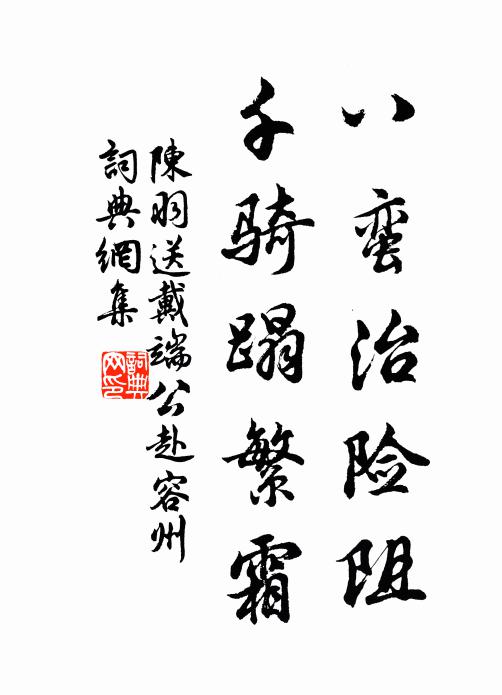 八蛮治险阻
千骑蹋繁霜
陳羽送戴端公赴容州
詞典網集
詞典网印